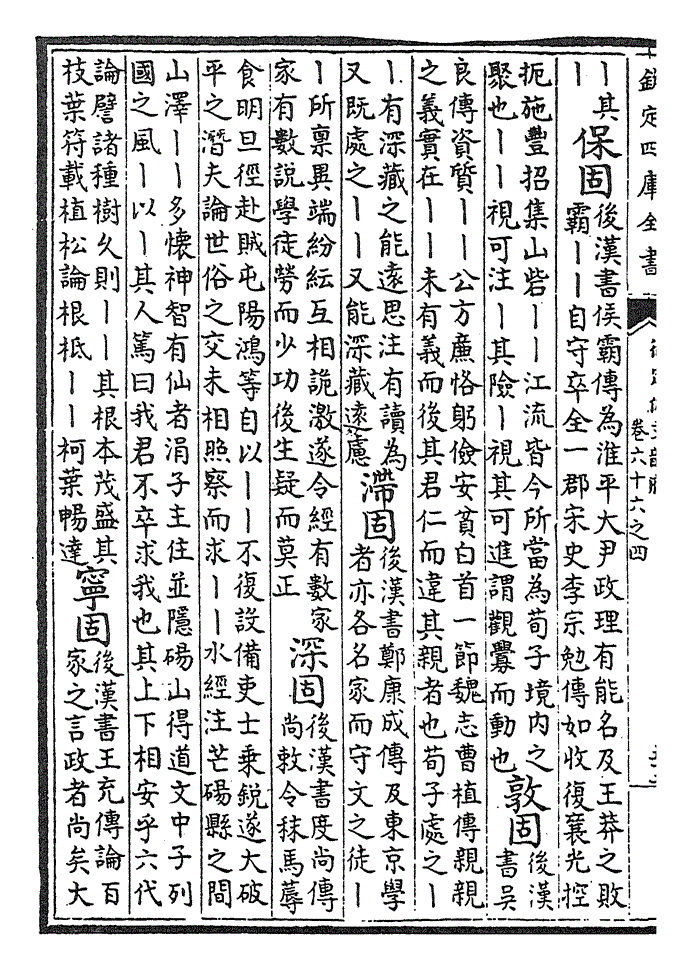 欽定四庫全書
卷六十六之四
｜其
｜
保固
後漢書侯霸傳為淮平大尹政理有能名及王莽之敗
霸｜｜自守卒全一郡宋史李宗勉傳如收復襄光控
扼施豐招集山砦｜｜江流皆今所當為荀子境内之
聚也｜｜視可注｜其險｜視其可進謂觀釁而動也
敦固
後漢
書吳
良傳資質｜｜公方廉恪躬儉安貧白首一節魏志曹植傳親親
之義實在｜｜未有義而後其君仁而違其親者也荀子處之｜
｜有深藏之能遠思注有讀為
又既處之｜｜又能深藏遠慮
滯固
後漢書鄭康成傳及東京學
者亦各名家而守文之徒｜
｜所禀異端紛紜互相詭激遂令經有數家
家有數說學徒勞而少功後生疑而莫正
深固
後漢書度尚傳
尚敕令秣馬蓐
食明旦徑赴賊屯陽鴻等自以｜｜不復設備吏士乗銳遂大破
平之潛夫論世俗之交未相照察而求｜｜水經注芒碭縣之間
山澤｜｜多懷神智有仙者涓子主住並隱碭山得道文中子列
國之風｜以｜其人篤曰我君不卒求我也其上下相安乎六代
論譬諸種樹久則｜｜其根本茂盛其
枝葉符載植松論根柢｜｜柯葉暢達
寧固
後漢書王充傳論百
家之言政者尚矣大